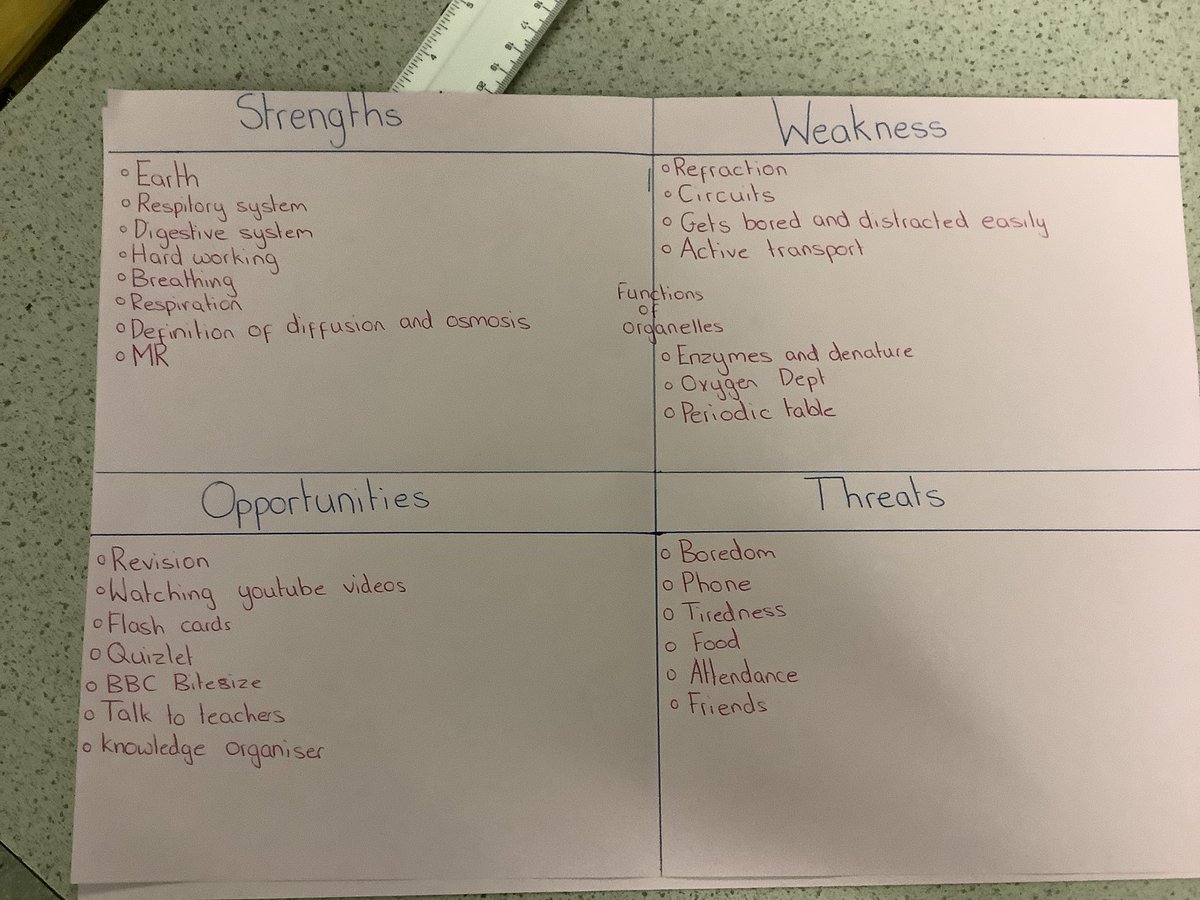 Strengths
Earth
Respitory system
Digestive system
Hard working
Breathing
Respiration
Definition of diffusion and osmosis
MR
Weakness
Refraction
Circuits
Gets bored and distracted easily
Active transport
Functions
of
organelles
Enzymes and denature
Oxygen Dept
Periodic table
Opportunities
Revision
Watching youtube videos
Flash cards
Quizlet
BBC Bitesize
Talk to teachers
knowledge organiser
Threats
Boredom
Phone
Tiredness
Food
Attendance
Friends